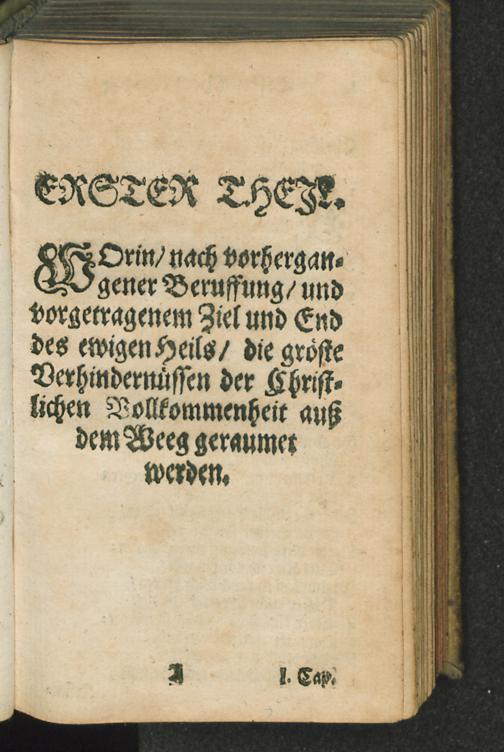 ERSTER THEJL.
WOrin/ nach vorhergan-
gener Beruffung/ und
vorgetragenem Ziel und End
des ewigen Heils/ die gröste
Verhindernüssen der Christ-
lichen Vollkommenheit auß
dem Weeg geraumet
werden.
A I. Cap.